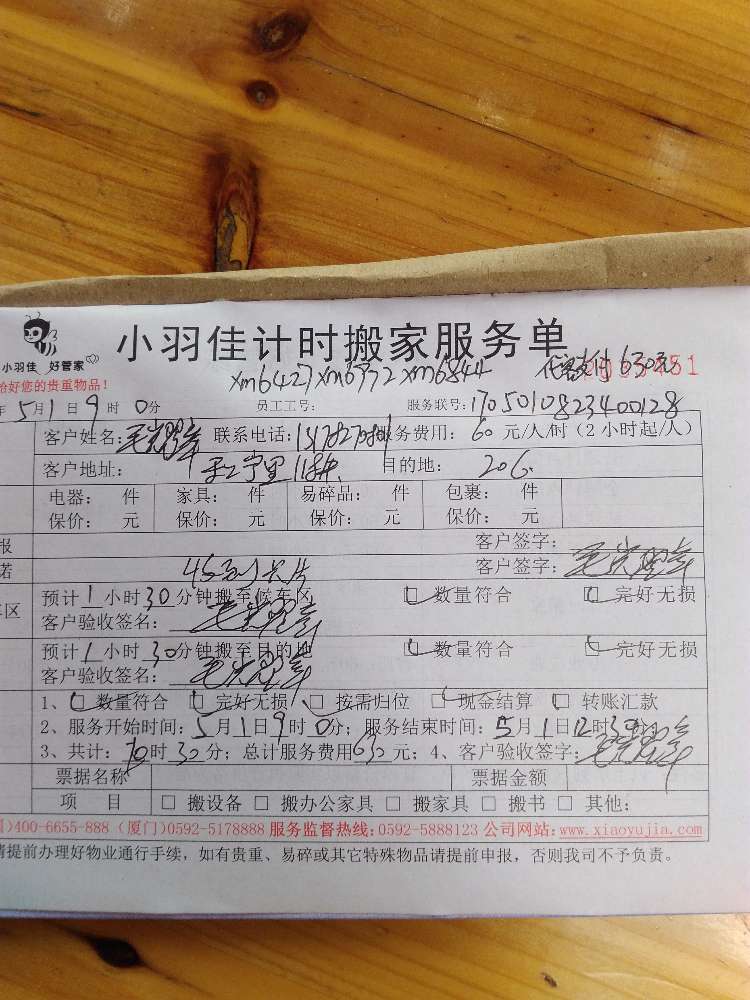 小羽佳计时搬家服务单
小羽佳 好管家
xm6427 xm6772 xm6844 代客支付630元
给好您的贵重物品！
年5月1日9时0分 员工工号： 服务联号：1705010823400128
客户姓名： 联系电话： 服务费用：60元/人/时（2小时起/人）
客户地址： 目的地：206
电器： 件 家具： 件 易碎品： 件 包裹： 件
保价： 元 保价： 元 保价： 元 保价： 元
报 客户签字：
诺 客户签字：
预计1小时30分钟搬至候车区 数量符合 完好无损
车区
客户验收签名：
预计1小时30分钟搬至目的地 数量符合 完好无损
客户验收签名：
1、数量符合 完好无损 按需归位 现金结算 转账汇款
2、服务开始时间：5月1日9时0分；服务结束时间：5月1日12时30
3、共计：时30分；总计服务费用630元；4、客户验收签字：
票据名称 票据金额
项 目 □ 搬设备 □ 搬办公家具 □ 搬家具 □ 搬书 □ 其他：
)400-6655-888（厦门）0592-5178888 服务监督热线：0592-5888123 公司网站：www.xiaoyujia.com
请提前办理好物业通行手续，如有贵重、易碎或其它特殊物品请提前申报，否则我司不予负责。